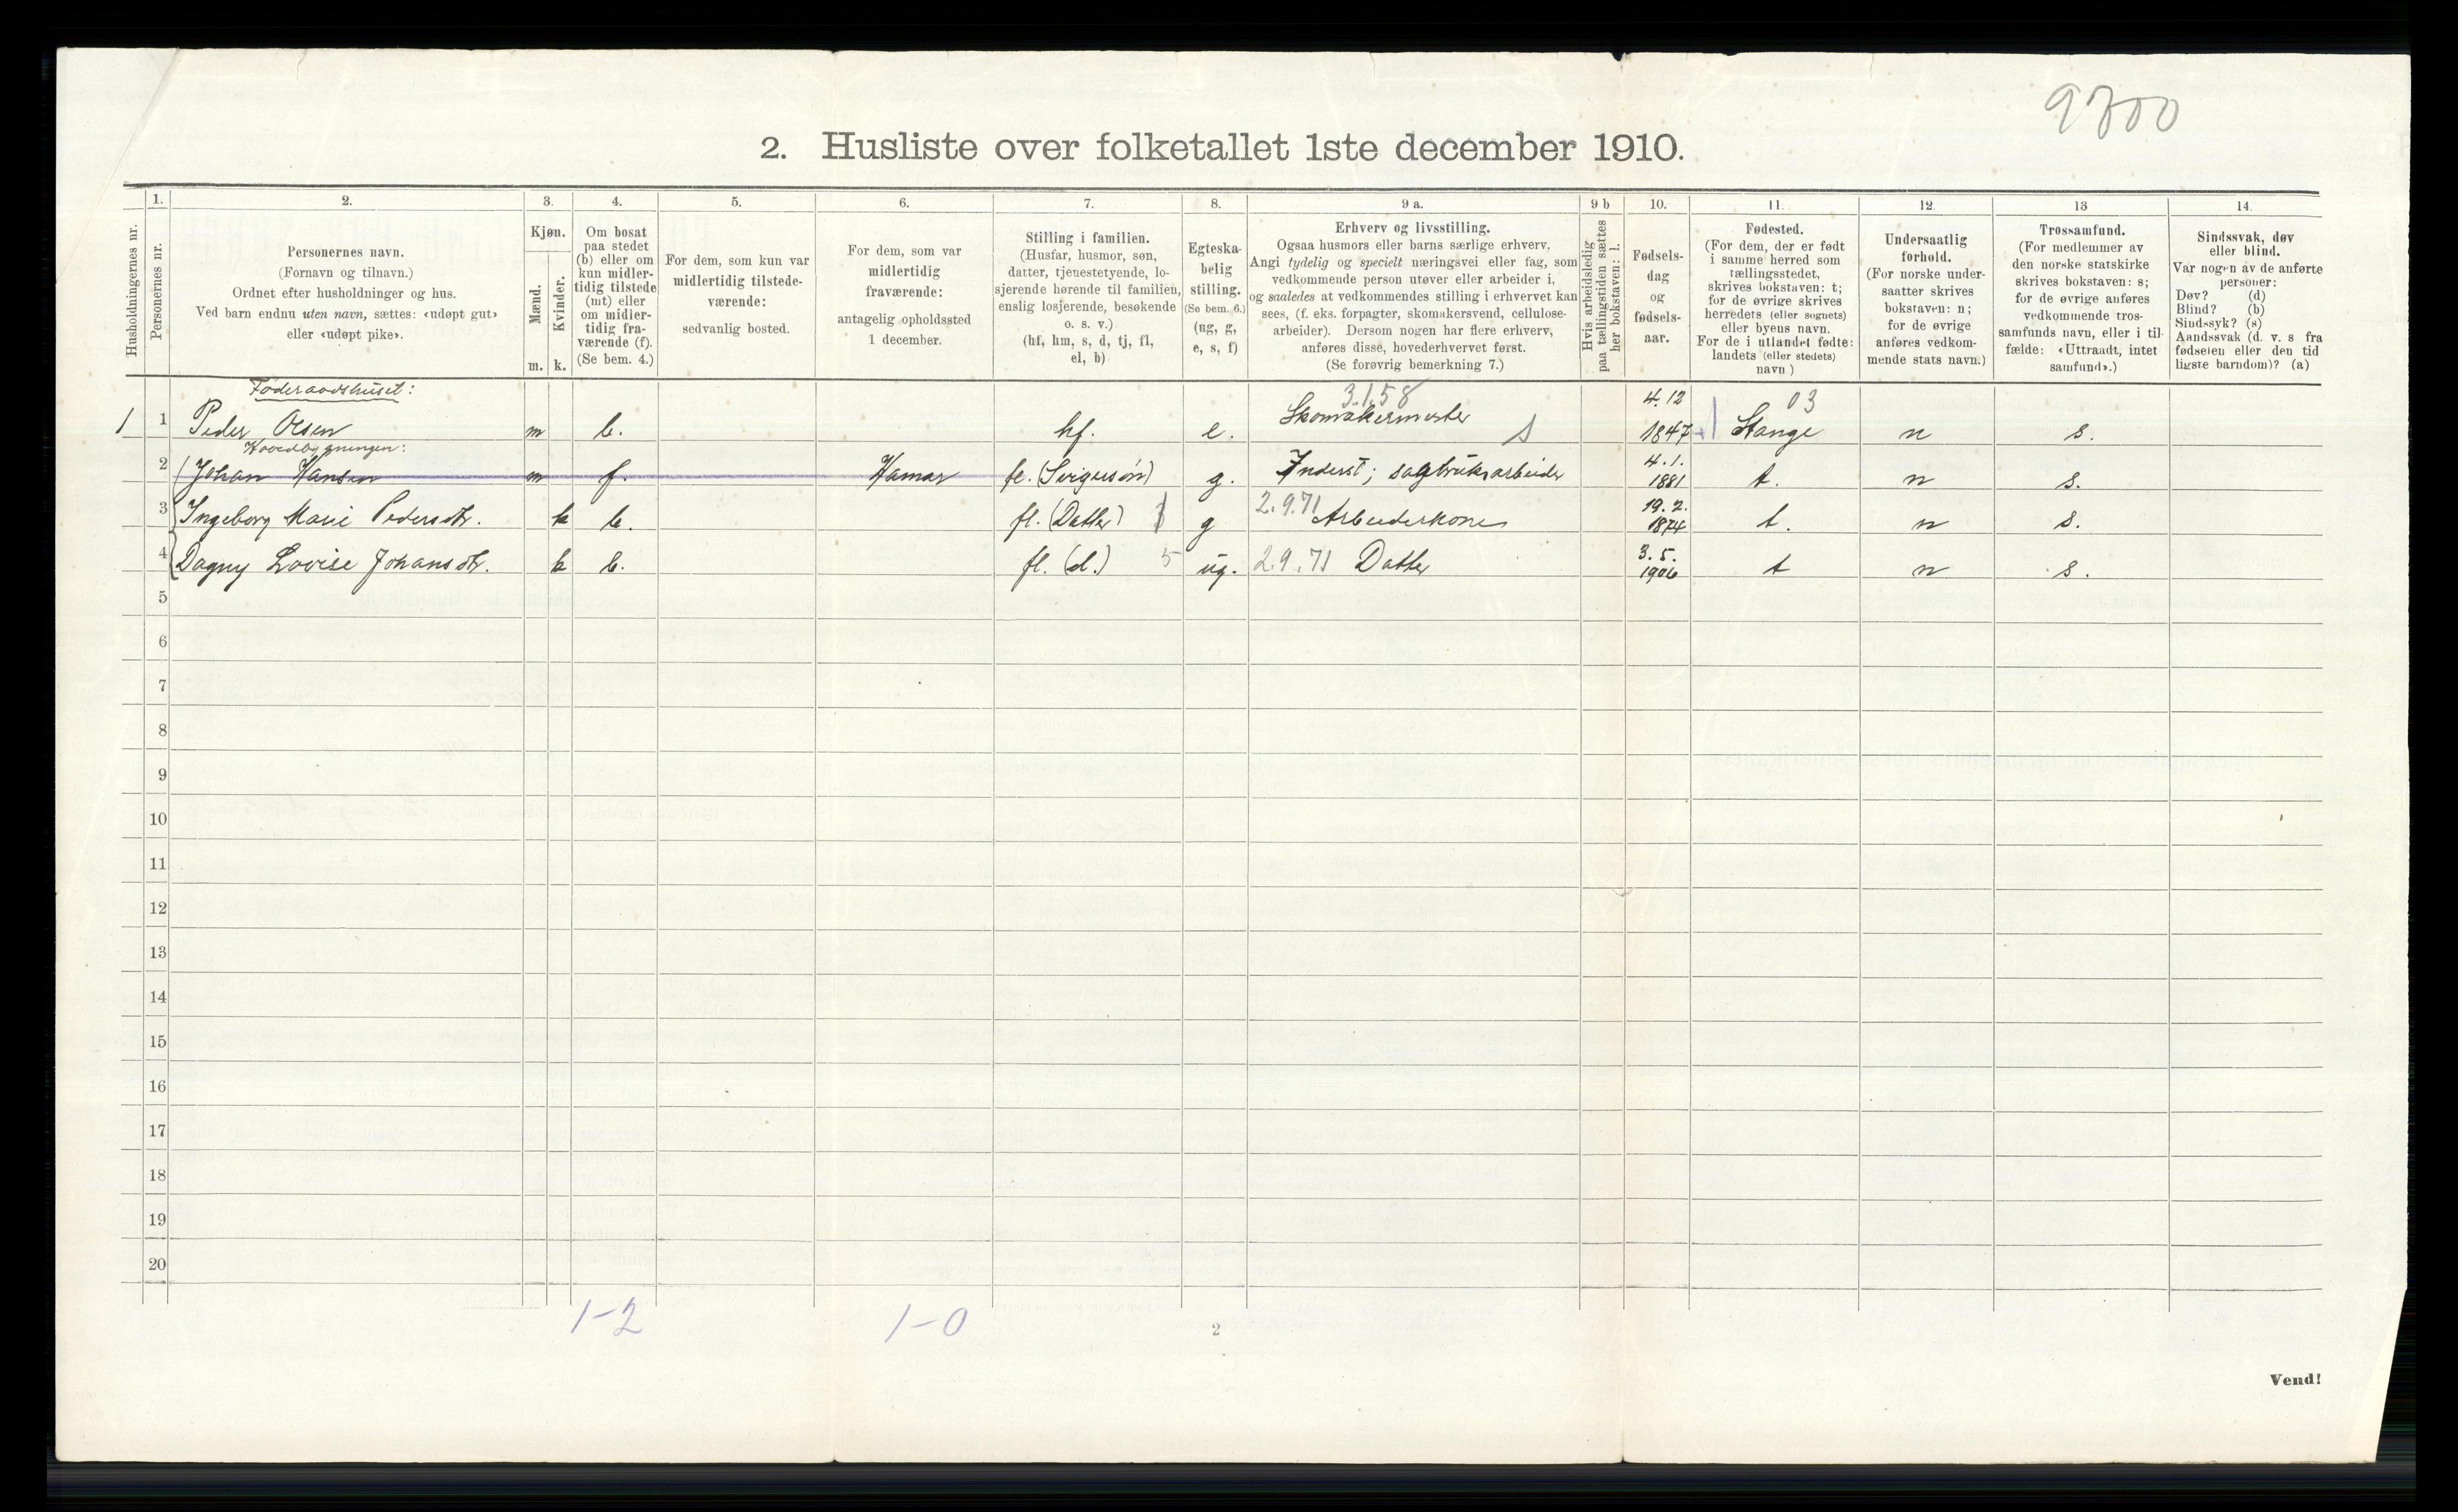 9300
2. Husliste over folketallet 1ste december 1910.
Husholdningernes nr.
1.
Personernes nr.
2.
Personernes navn.
(Fornavn og tilnavn.)
Ordnet efter husholdninger og hus.
Ved barn endnu uten navn, sættes: «udøpt gut»
eller «udøpt pike».
3.
Kjøn.
Mænd.
Kvinder.
m. k.
4.
Om bosat
paa stedet
(b) eller om
kun midler-
tidig tilstede
(mt) eller
om midler-
tidig fra-
værende (f).
(Se bem. 4.)
5.
For dem, som kun var
midlertidig tilstede-
værende:
sedvanlig bosted.
6.
For dem, som var
midlertidig
fraværende:
antagelig opholdssted
1 december.
7.
Stilling i familien.
(Husfar, husmor, søn,
datter, tjenestetyende, lo-
sjerende hørende til familien,
enslig losjerende, besøkende
o. s. v.)
(hf, hm, s, d, tj, fl,
el, b)
8.
Egteska-
belig
stilling.
(Se bem. 6.)
(ug, g,
e, s, f)
9 a.
Erhverv og livsstilling.
Ogsaa husmors eller barns særlige erhverv.
Angi tydelig og specielt næringsvei eller fag, som
vedkommende person utøver eller arbeider i,
og saaledes at vedkommendes stilling i erhvervet kan
sees, (f. eks. forpagter, skomakersvend, cellulose-
arbeider). Dersom nogen har flere erhverv,
anføres disse, hovederhvervet først.
(Se forøvrig bemerkning 7.)
9 b
Hvis arbeidsledig
paa tællingstiden sættes
her bokstaven: l.
10.
Fødsels-
dag
og
fødsels-
aar.
11.
Fødested.
(For dem, der er født
i samme herred som
tællingsstedet,
skrives bokstaven: t;
for de øvrige skrives
herredets (eller sognets)
eller byens navn.
For de i utlandet fødte:
landets (eller stedets)
navn.)
12.
Undersaatlig
forhold.
(For norske under-
saatter skrives
bokstaven: n;
for de øvrige
anføres vedkom-
mende stats navn.)
13
Trossamfund.
(For medlemmer av
den norske statskirke
skrives bokstaven: s;
for de øvrige anføres
vedkommende tros-
samfunds navn, eller i til-
fælde: «Uttraadt, intet
samfund».)
14.
Sindssvak, døv
eller blind.
Var nogen av de anførte
personer:
Døv? (d)
Blind? (b)
Sindssyk? (s)
Aandssvak (d. v. s fra
fødselen eller den tid
ligste barndom)? (a)
Føderaadshuset:
3.1.58
4.12
03
1 1 Peder Olsen m b. hf. e. Skomakermester 1847 Stange n s.
Hovedbygningen:
2 Johan Hansen m f. Hamar fl. (Svigersøn) g. Inderst; sagbruksarbeider 4.1. 1881 t. n s.
3 Ingeborg Marie Pedersdtr. k b. fl. (Datter) g 2.9.71 Arbeiderkone 19.2. 1874 t. n s.
4 Dagny Lovise Johansdtr. k b. fl. (d.) 5 ug. 2.9.71 Datter 3.5. 1906 t n s.
5
6
7
8
9
10
11
12
13
14
15
16
17
18
19
20
1-2 1-0
2
Vend!